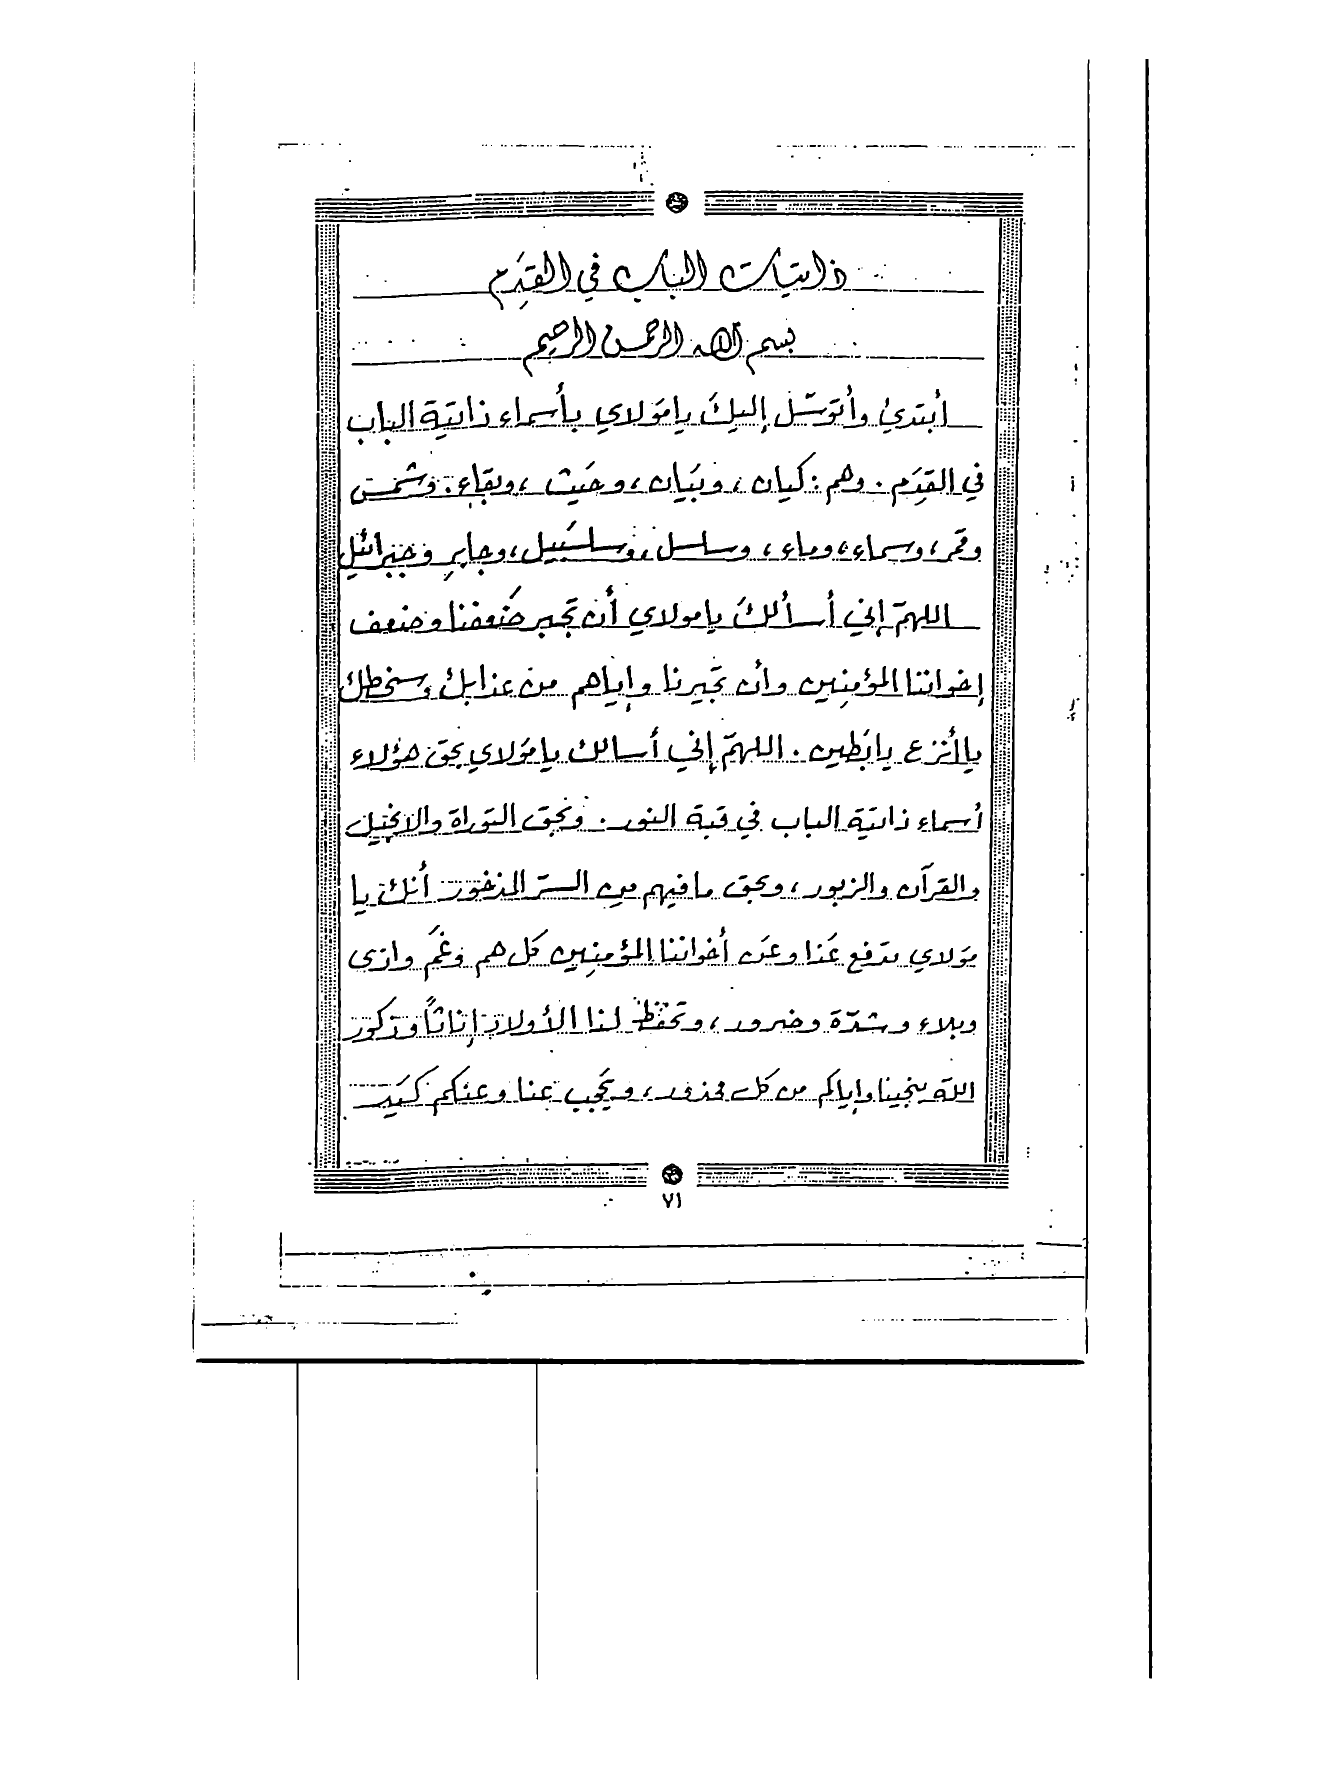 ذاتيات الباب في القِدَم
بسم الله الرحمن الرحيم
أبتدئ وأتوسّل إليكَ يا مَولاي بأسماء ذاتيّة الباب
في القِدَم. وهم: كيان، وبَيان، وحَيث، وبقاء. وشمس
وقمر، وسماء، وماء، وسلسل، وسلسَبيل، وجابر وجبرائيل
اللهمّ إني أسألكَ يا مولاي أن تجبر ضَعفنا وضعف
إخواننا المؤمنِين وأن تجيرنا وإياهم من عذابك وسخطك
يا أنزع يا بَطين. اللهمّ إني أسالك يا مَولاي بحق هؤلاء
أسماء ذاتيّة الباب في قبة النور. وبحق التوراة والإنجيل
والقرآن والزبور، وبحق ما فيهم من السرّ المذخور أنك يا
مَولاي تدفع عَنا وعن أخواننا المؤمنِين كل هم وغَم واذى
وبلاء وشدّة وضرور، وتحفظ لنا الأولاد إناثاً وذكور
الله ينجينا وإياكم من كل محذور، ويجب عنا وعنكم كَيد
٧١